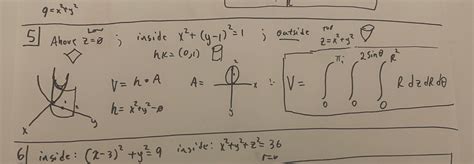 9 = x²+y²
5 Above z=0 ; inside x²+(y-1)²=1 ; outside z=x²+y²
hk=(0,1)
V = h·A
A =
h = x²+y²-0
V = ∫₀^π ∫₀^{2sinθ} ∫₀^{R²} R dz dR dθ
x
y
x
6 inside: (x-3)²+y²=9 inside: x²+y²+z²=36